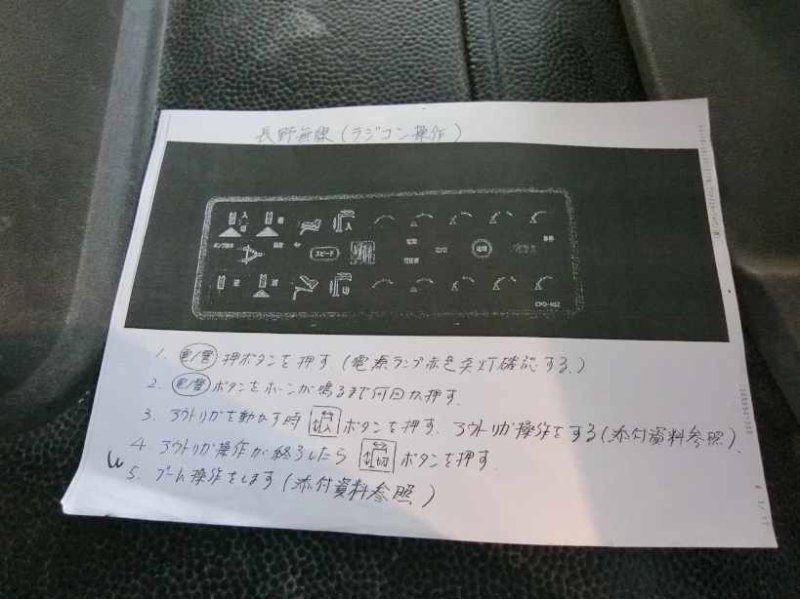 長野無線(ラジコン操作)
入
切
入
スピード
切
CPD-462
1. 電/警 押ボタンを押す(電源ランプ赤色点灯確認する。)
2. 電/警 ボタンをホーンが鳴るまで何回か押す.
3. アウトリガを動かす時 入 ボタンを押す. アウトリガ操作をする(添付資料参照)
4. アウトリガ操作が終了したら 切 ボタンを押す
5. ブーム操作をします(添付資料参照)